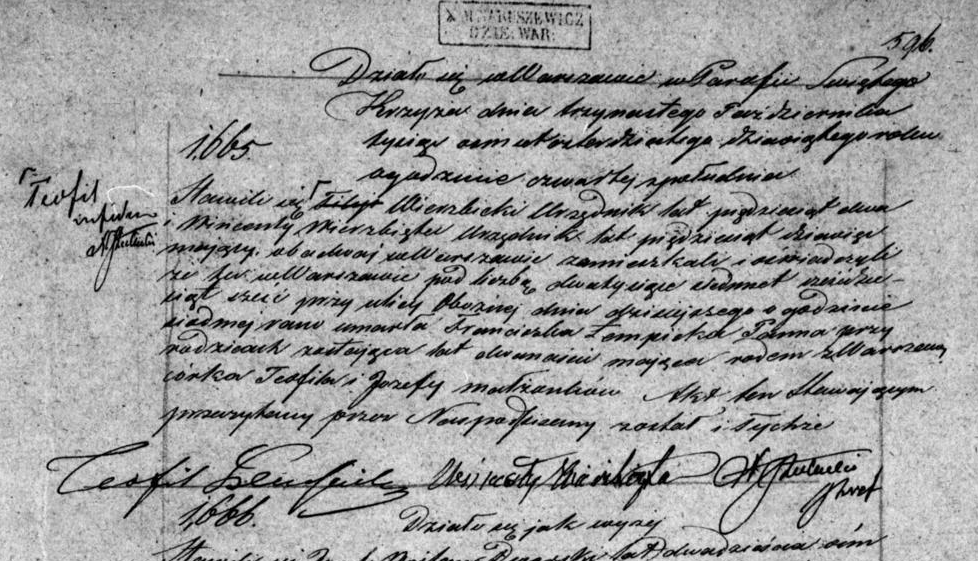 X. M. NARUSZEWICZ
DZIE: WAR:
596.
Działo się w Warszawie w Parafii Swiętego
Krzyża dnia trzynastego Pazdziernika
tysiąc osmset czterdziestego dziewiątego roku
o godzinie czwartej z południa
1,665
Teofil
Stawili się Wierzbicki Urzędnik lat pięćdziesiąt dwa
i Wincenty Urzędnik lat pięćdziesiąt dziewięć
mający, obadwaj w Warszawie zamieszkali i oswiadczyli
że tu w Warszawie pod liczbą dwa tysiące siedmset
siąt sześć przy ulicy Oboznej dnia dzisiejszego o godzinie
siodmej rano umarła Franciszka Łempicka Panna przy
rodzicach zostająca lat dwanaście mająca rodem z Warszawy
córka Teofila i Jozefy małżonków Akt ten Stawającym
przeczytany przez Nas podpisany został i Tychże
Teofil
Wincenty
1,666.
Działo się jak wyżej
Stawili się lat dwadzieścia ośm